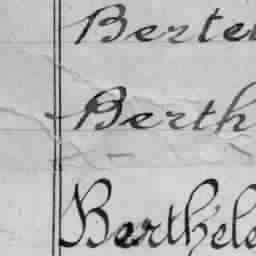 Berte
Berth
Berthele